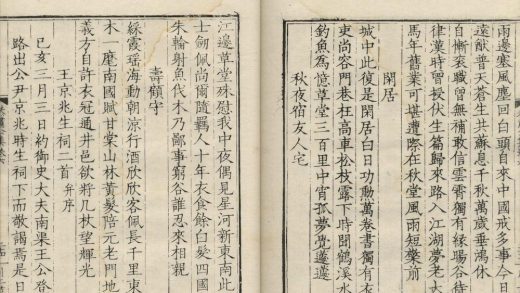 雨邊塞風塵回白頭自來中國戒多事今日
遠猷普天蒼生共蘇息千秋萬歲垂鴻休
自慚袞職曾無補敢信雲霄獨有緣暘谷待
律漢時曾授伏生篇歸來路入江湖夢老大
馬年舊業可堪遭際在秋堂風雨短檠前
閑居
城中此復是閑居白日功勳萬卷書獨有衣
吏尚容門巷枉高車松枝露下時聞鶴溪水
釣魚為憶草堂三百里中宵孤夢覺蘧蘧
秋夜宿友人宅
江邊草堂殊慰我中夜偶見星河新東南此
士劍佩尚爾隨羈人十年衣食餘白髮四國
朱輪射魚伐木乃鄙事窮谷誰忍來相親
壽顧守
綵霞瑤海動朝涼行酒欣欣客佩長千里東
木一麾南國賦甘棠山林黃髮陪元老門地
義方自許衣冠通井邑欲將几杖望輝光
王京兆生祠二首 并序
己亥三月三日約御史大夫南渠王公登
路出公尹京兆時生祠下而敬謁焉是日